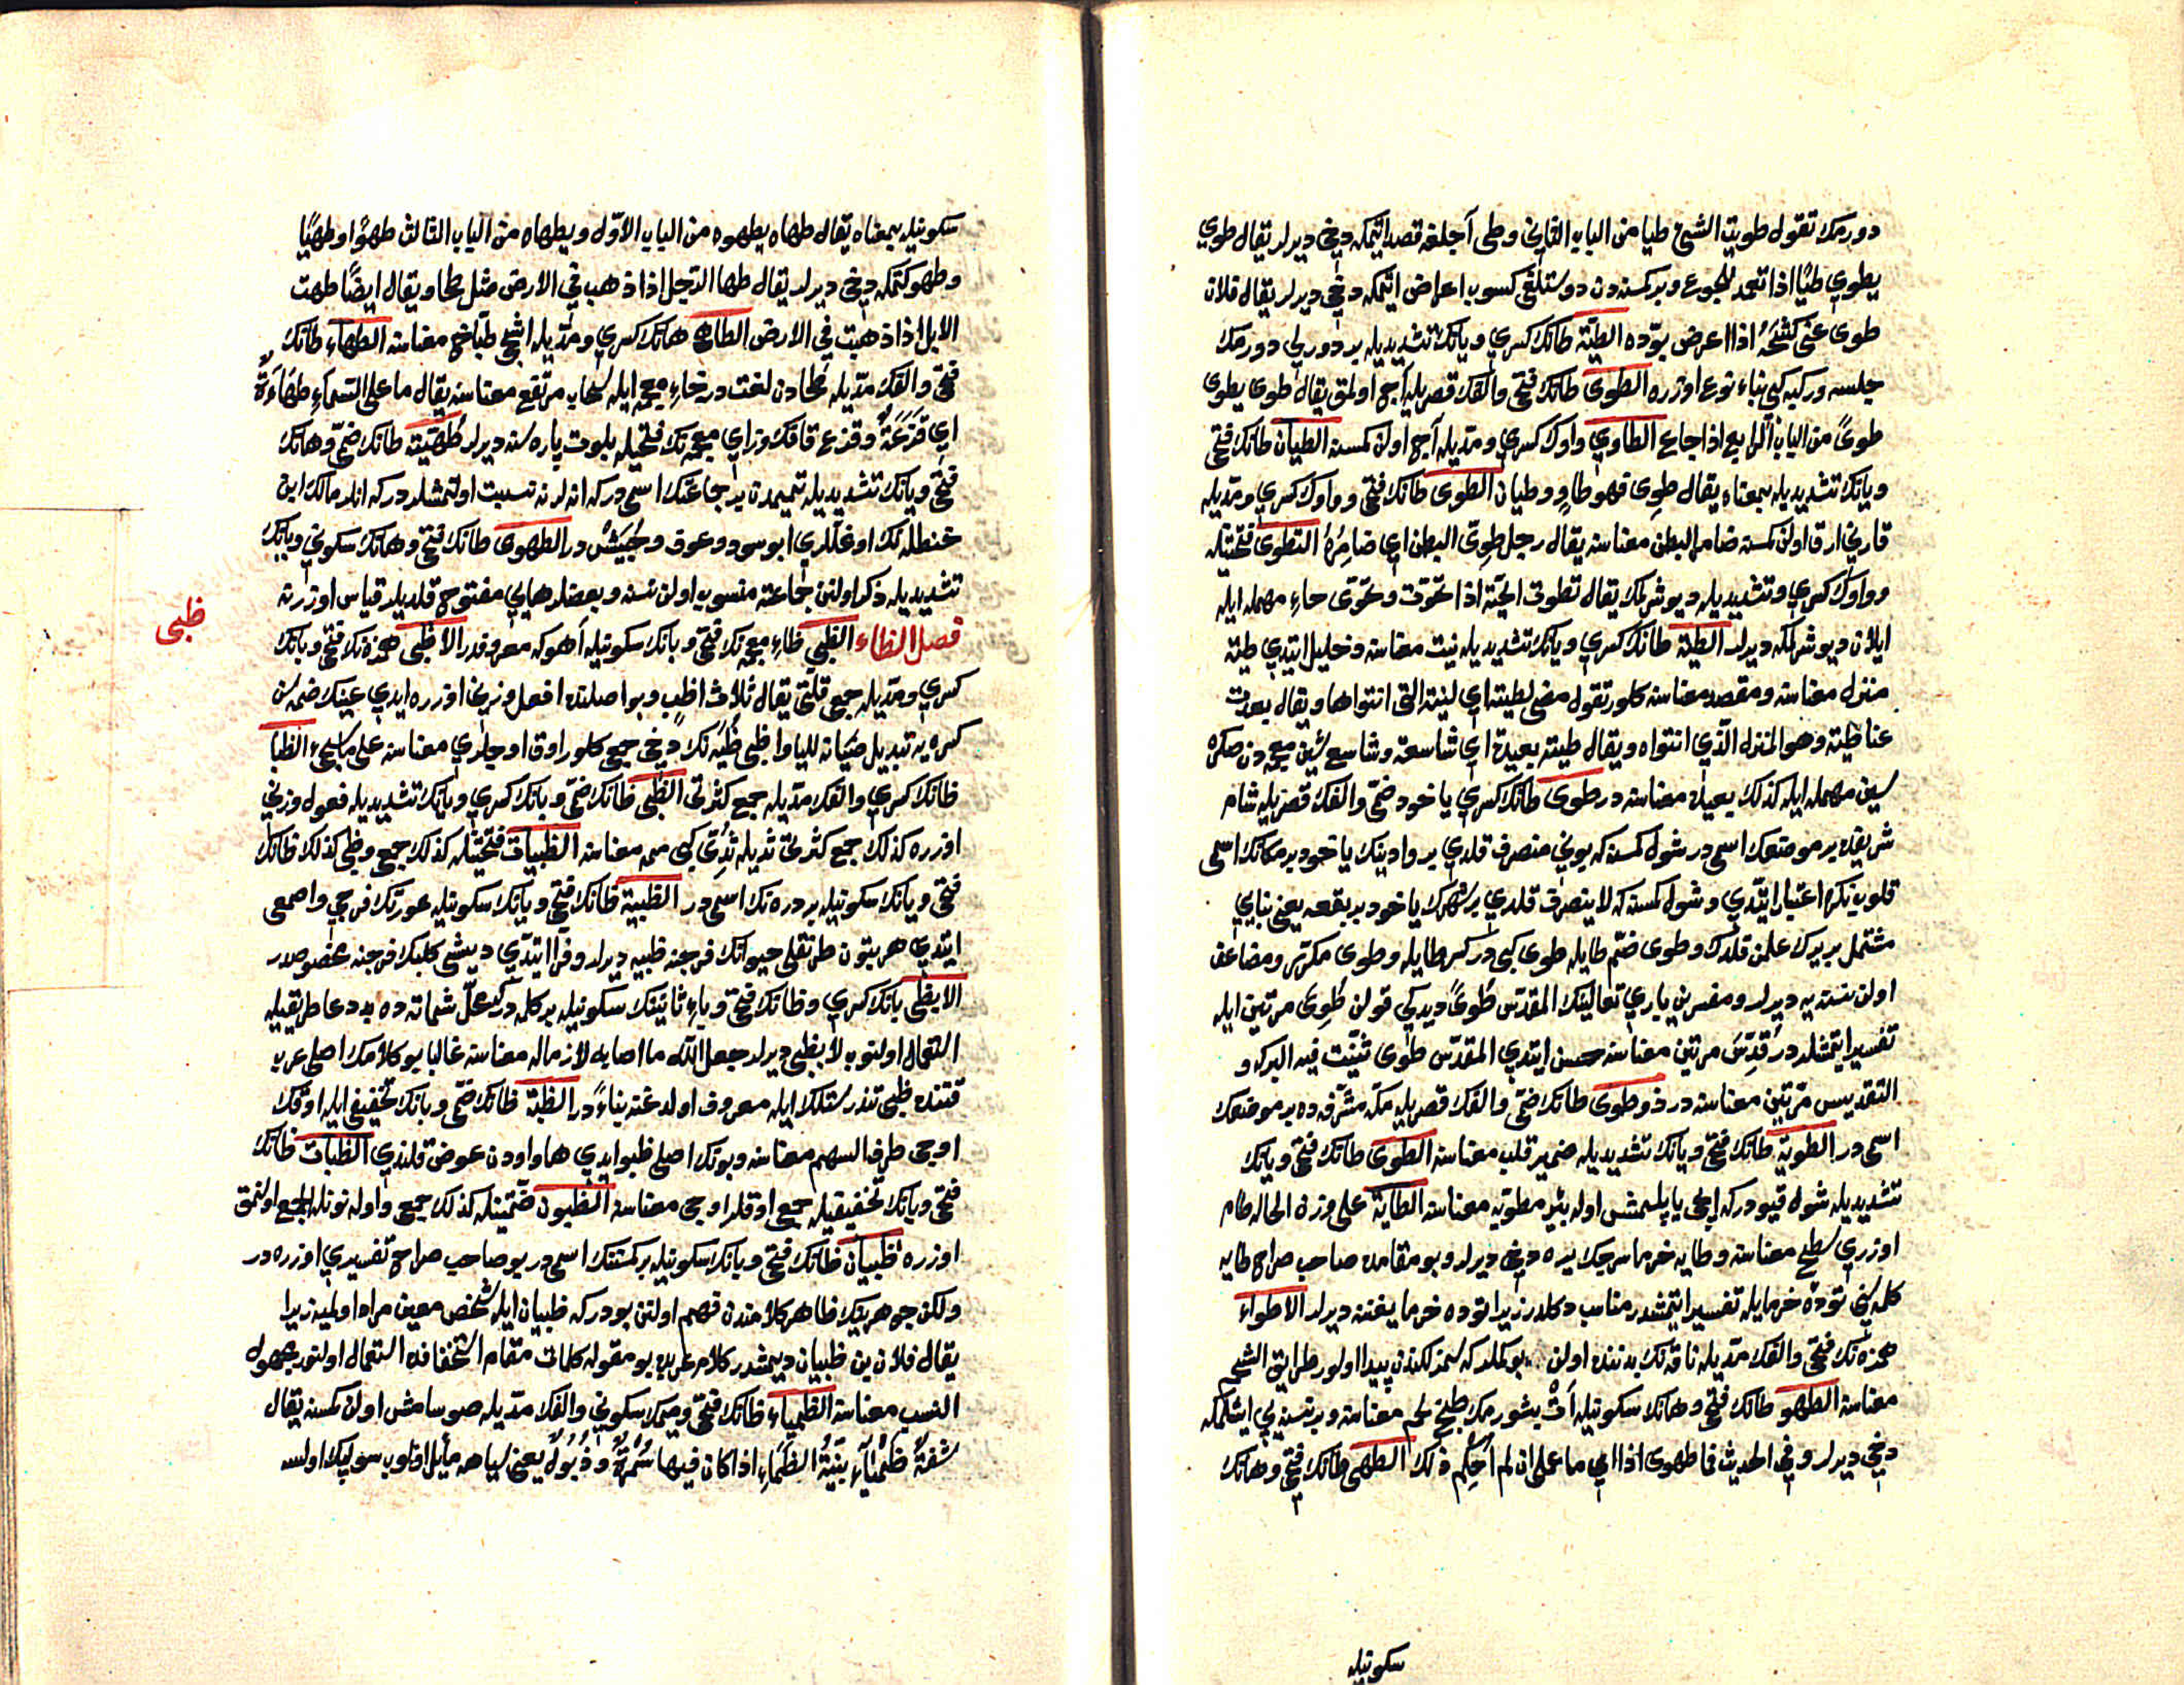 دورمك تقول طويت الشئ طيا من الباب الثانى وطى آجلغه قصد ايتمكه دخى ديرلر يقال طوي
يطوي طيًّا اذا تعمد للجوع وبر كمسنه دن دوستلغى كسوب اعراض ايتمكه دخى ديرلر يقال فلان
طوى عنى كشحَهُ اذا اعرض بودّه الطيّة طانك كسري ويانك تشديديله بر دورلى دورمك
جلسه وركبه كبى بناء نوع اوزره الطوى طانك فتحى والفك قصريله آج اولمق يقال طوى يطوى
طوىً من الباب الرابع اذا جاع الطاوي واوك كسري ومدّيله آج اولن كمسنه الطيان طانك فتحى
ويانك تشديديله بمعناه يقال طوِى فهو طاوٍ وطيان الطوى طانك فتحى وواوك كسري ومدّيله
قارنى ارق اولن كمسنه ضامر البطن معناسنه يقال رجل طوِىّ البطن اي ضامرُهُ التطوى فتحتيله
وواوك كسري وتشديديله ديوشرلمك يقال تطوت الحيّة اذا تحوّت وتحوّى حاء مهمله ايله
ايلان ديوشرلمكه ديرلر الطية طانك كسري ويانك تشديديله نيت معناسنه وخليل ايتدي طية
منزل معناسنه ومقصد معناسنه كلور تقول مضى لطيته اي لنيته التى انتواها ويقال بعدت
عنا طيته وهو المنزل الذي انتواه ويقال طية بعيدة اي شاسعة وشاسع شين معجمه دن صكره
سين مهمله ايله كذلك بعيد معناسنه در طوى طانك كسري يا خود ضمّى والفك قصريله شام
شريفده بر موضعك اسمى در شول كمسنه كه بونى منصرف قلدي بر وادينك يا خود بر مكانك اسمى
قلوب نكره اعتبار ايتدي وشول كمسنه كه لا ينصرف قلدي بر شهرك يا خود بر بقعه يعنى بنايى
مشتمل بر يرك علمن قلدك وطوى ضمّ طايله طوى كبى در كسر طايله وطوى مكرّر ومضاعف
اولن نسنه يه ديرلر ومفسرين باري تعالينك المقدّس طُوىً ديدكى قولن طُوِىَ مرتين ايله
تفسير ايتمشلردر قُدِّسَ مرتين معناسنه حسن ايتدي المقدّس طوى ثنيّت فيه البركه و
التقديس مرّتين معناسنه در ذو طوى طانك ضمّى والفك قصريله مكّه مشرّفه ده بر موضعك
اسمى در الطوية طانك فتحى ويانك تشديديله ضمير قلب معناسنه الطوى طانك فتحى ويانك
تشديديله شول قيودركه ايچى ياپلمش اوله بئر مطويّه معناسنه الطاية على وزن الحاله طام
اوزري سطح معناسنه وطايه خرما سرجك يره دخى ديرلر وبو مقامده صاحب صراح طايه
كلمه سنى تودۀ خرما ايله تفسير ايتمشدر مناسب دكلدر زيرا توده خرما يغننه ديرلر الاطواء
همزه نك فتحى والفك مدّيله ناقه نك بدننده اولن بوكملر كه سمزلكندن پيدا اولور طرايق الشحم
معناسنه الطهو طانك فتحى وهانك سكونيله اَتْ بشورمك طبخ لحم معناسنه وبر نسنه يى ايشلمكه
دخى ديرلر وفى الحديث فما طهوى اذا اي ما عملى ان لم اُحكِم ذلك الطهى طانك فتحى وهانك
سكونيله
سكونيله بمعناه يقال طهاه يطهوه من الباب الاوّل ويطهاه من الباب الثالث طهوًا وطهيًا
وطهو كتمكه دخى ديرلر يقال طها الرّجل اذا ذهب فى الارض مثل طحا ويقال ايضًا طهت
الابل اذا ذهبت فى الارض الطاهى هانك كسري ومدّيله اشجى طبّاخ معناسنه الطهاء طانك
فتحى والفك مدّيله طخادن لغت در خاء معجمه ايله سحاب مرتفع معناسنه يقال ما على السّماء طهاءةٌ
اي قَزَعَةٌ وقزع قافك وزاي معجمه نك فتحيله بلوت پاره سنه ديرلر طُهيّة طانك ضمّى وهانك
فتحى ويانك تشديديله تميمدن بر جماعتك اسمى در كه انلرنه نسبت اولنمشلردر كه انلر مالك ابن
حنظله نك اوغللري ابو سود وعوف وحُبَيْش در الطهوى طانك فتحى وهانك سكونى ويانك
تشديديله ذكر اولنن جماعته منسوب اولن نسنه وبعضلر هايى مفتوح قلديلر قياس اوزرنه
فصل الظاء الظبى ظاء معجمه نك فتحى وبانك سكونيله آهو كه معروفدر الاظبى همزه نك فتحى وبانك
ظبى
كسري ومدّيله جمع قلّتى يقال ثلاث اظبٍ وبو اصلنده افعل وزنى اوزره ايدي عينك ضمّه سن
كسره يه تبديل صيانة للياء اظبى ظبيه نك دخى جمعى كلور اوق اوجلري معناسنه على ما سيجئ الظبا
ظانك كسري والفك مدّيله جمع كثرتى الظبى ظانك ضمّى وبانك كسري ويانك تشديديله فعول وزنى
اوزره كذلك جمع كثرتى ثديله ثُدِىّ كبى ممه معناسنه الظبيات فتحتيله كذلك جمعى وظبى كذلك ظانك
فتحى وبانك سكونيله بر دره نك اسمى در الظبية ظانك فتحى وبانك سكونيله عورتك فرجى واصمعى
ايتدي هر بتون طرنقلى حيوانك فرجنه ظبيه ديرلر وفرّا ايتدي ديشى كلبك فرجنه مخصوصدر
الا بظبى بانك كسري وظانك فتحى وباء ثانيه نك سكونيله بر كلمه در كه محلّ شماتته ده بد دعا طريقيله
استعمال اولنوب لا بظبى ديرلر جعل الله ما اصابه لازما له معناسنه غالبا بو كلامك اصلى عرب
قتنده ظبى تندرستلك ايله معروف اولدغنه بناءً در الظبة ظانك ضمّى وبانك تخفيفى ايله اوقك
اوجى طرف السهم معناسنه وبونك اصلى ظبو ايدي ها واودن عوض قلندي الظبات ظانك
ضمّى وبانك تخفيفيله جمعى اوقلر اوجى معناسنه الظبون ضمّتيله كذلك جمعى واو له نونله الجمع اولنمق
اوزره ظبيان ظانك فتحى وبانك سكونيله بر كمسنه نك اسمى در بو صاحب صراح تفسيري اوزره در
ولكن جوهرينك ظاهر كلامندن فهم اولنن بودر كه ظبيان ايله شخص معين مراد اولميه زيرا
يقال فلان بن ظبيان ديمشدر كلام عربده بو مقوله كلمات مقام استخفافده استعمال اولنور مجهول
النسب معناسنه الظمياء ظانك فتحى وميمك سكونى والفك مدّيله صوسامش اولن كمسنه يقال
شفةٌ ظمياء بيّنةُ الظَمَاءِ اذا كان فيها سُمْرَةٌ وذُبُولٌ يعنى سياهه مايل اولوب سولپك اولسه